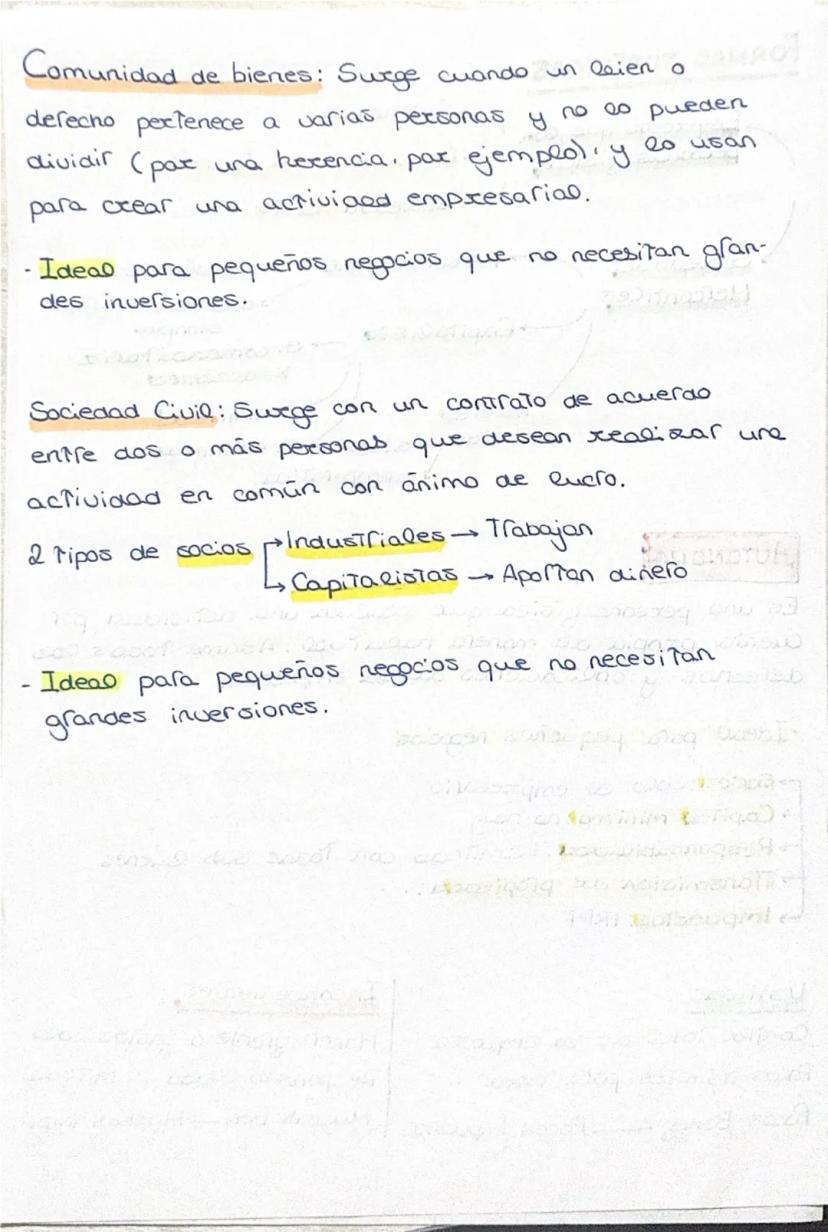 Comunidad de bienes: Surge cuando un bien o
derecho pertenece a varias personas y no lo pueden
dividir (por una herencia, por ejemplo), y lo usan
para crear una actividad empresarial.
- Ideal para pequeños negocios que no necesitan gran-
des inversiones.
Sociedad Civil: Surge con un contrato de acuerdo
entre dos o más personas que desean realizar una
actividad en común con ánimo de lucro.
2 tipos de socios → Industriales → Trabajan
→ Capitalistas → Aportan dinero
- Ideal para pequeños negocios que no necesitan
grandes inversiones.